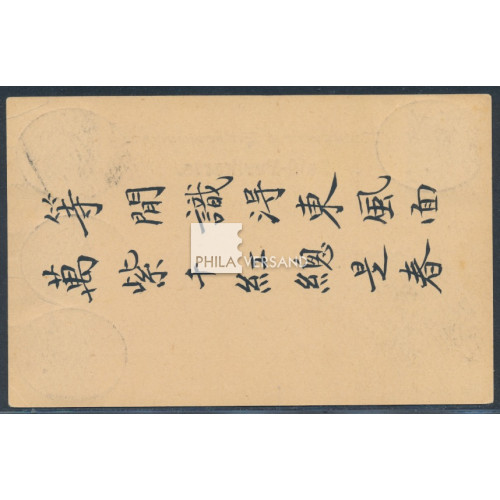 等閒識淂東風面
萬紫千紅總是春
PHILA VERSAND